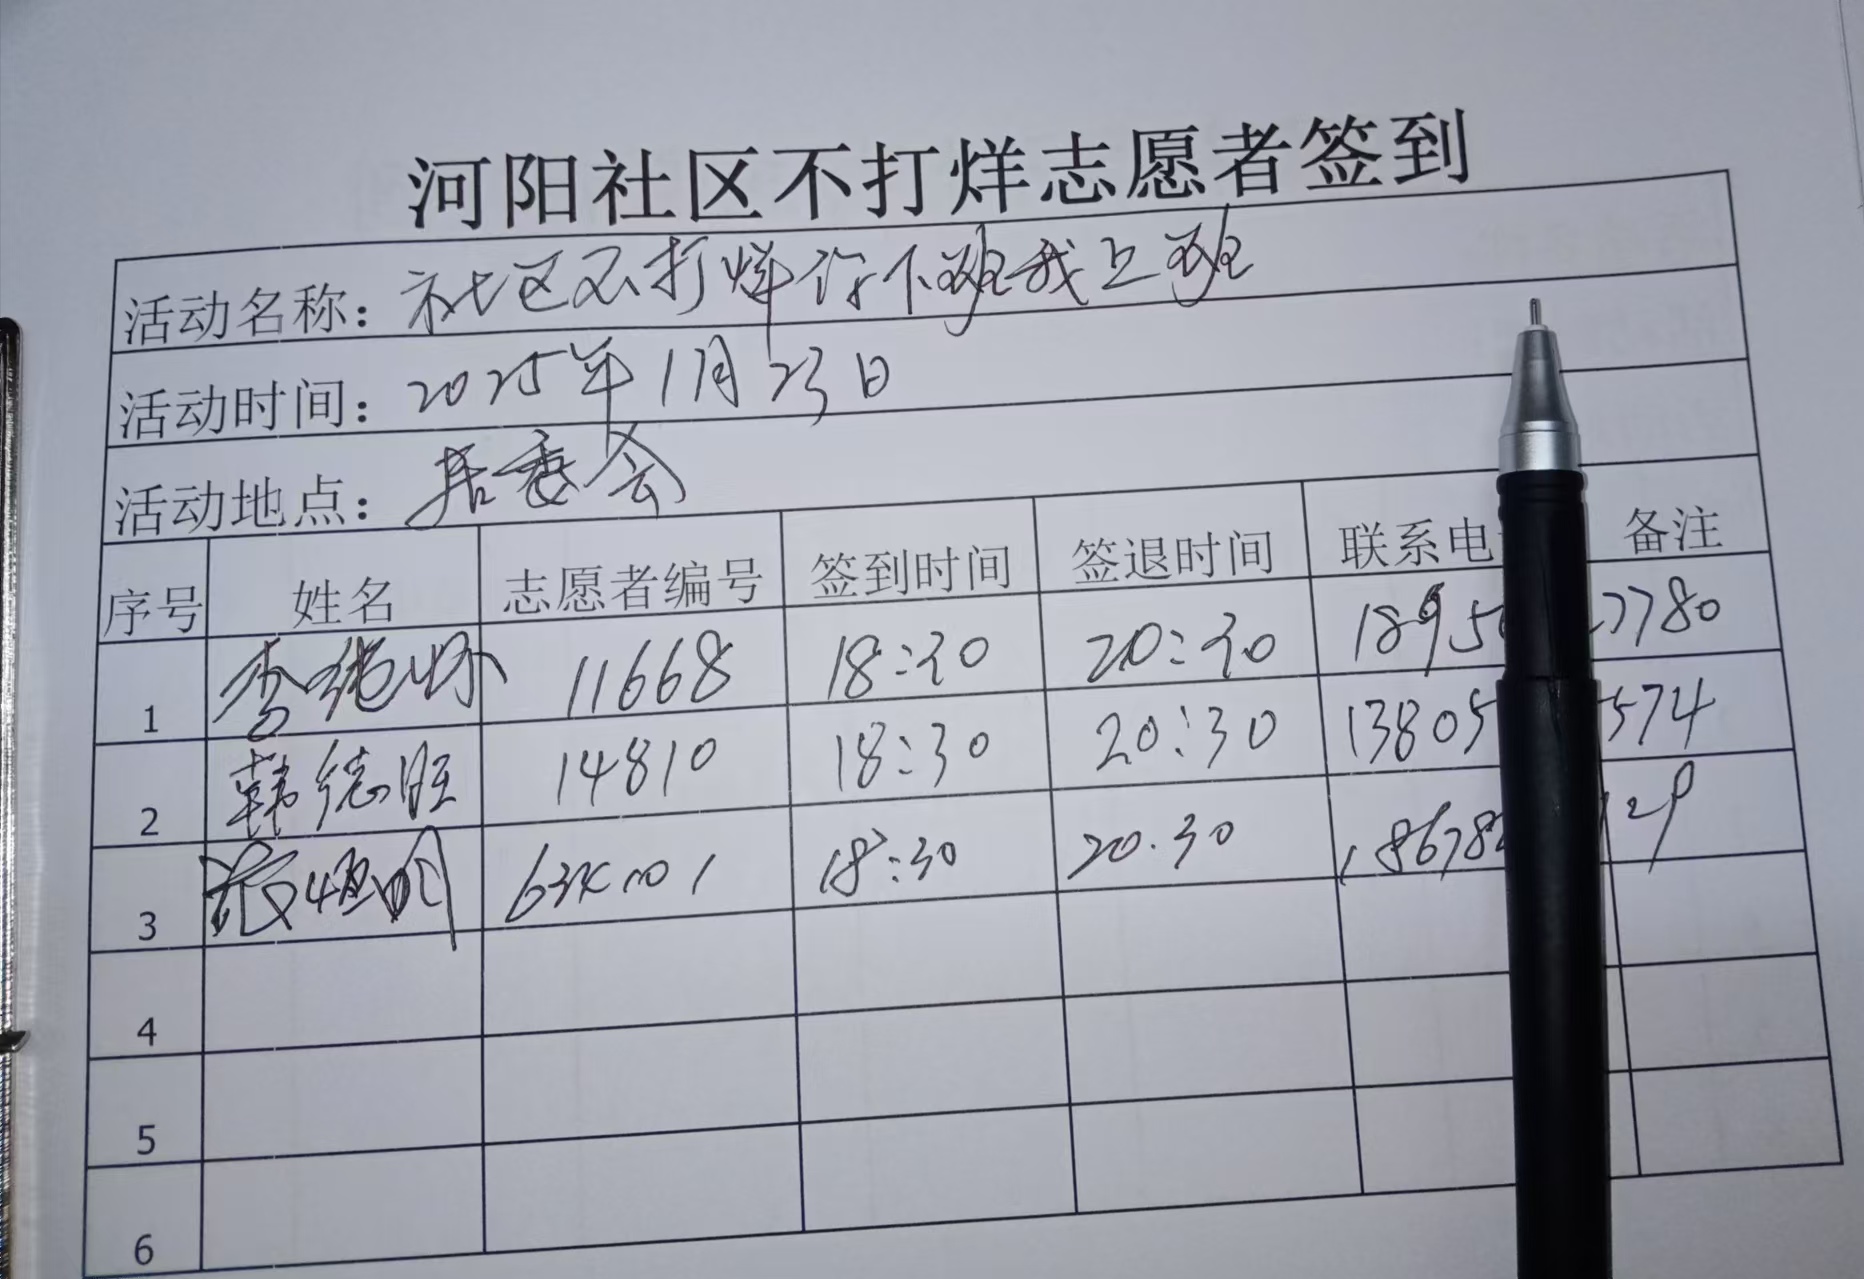 河阳社区不打烊志愿者签到
活动名称：社区不打烊你下班我上班
活动时间：2025年1月23日
活动地点：居委会
序号 姓名 志愿者编号 签到时间 签退时间 联系电 备注
1 李 11668 18:30 20:30 1895 7780
2 韩德旺 14810 18:30 20:30 13805 574
3 18:30 20.30 18678 129
4
5
6